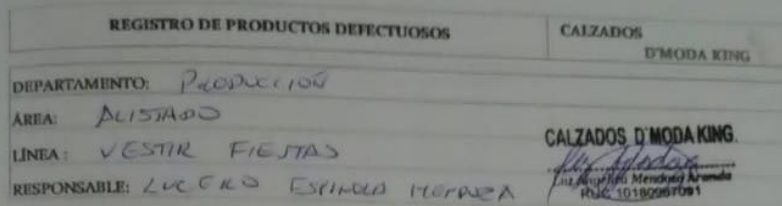 REGISTRO DE PRODUCTOS DEFECTUOSOS
CALZADOS
D'MODA KING
DEPARTAMENTO: PRODUCCIÓN
ÁREA: ALISTADO
LÍNEA: VESTIR FIESTAS
RESPONSABLE: LUCERO ESPINOLA
CALZADOS D'MODA KING.
Luz Angélica Mendoza Aranda
RUC